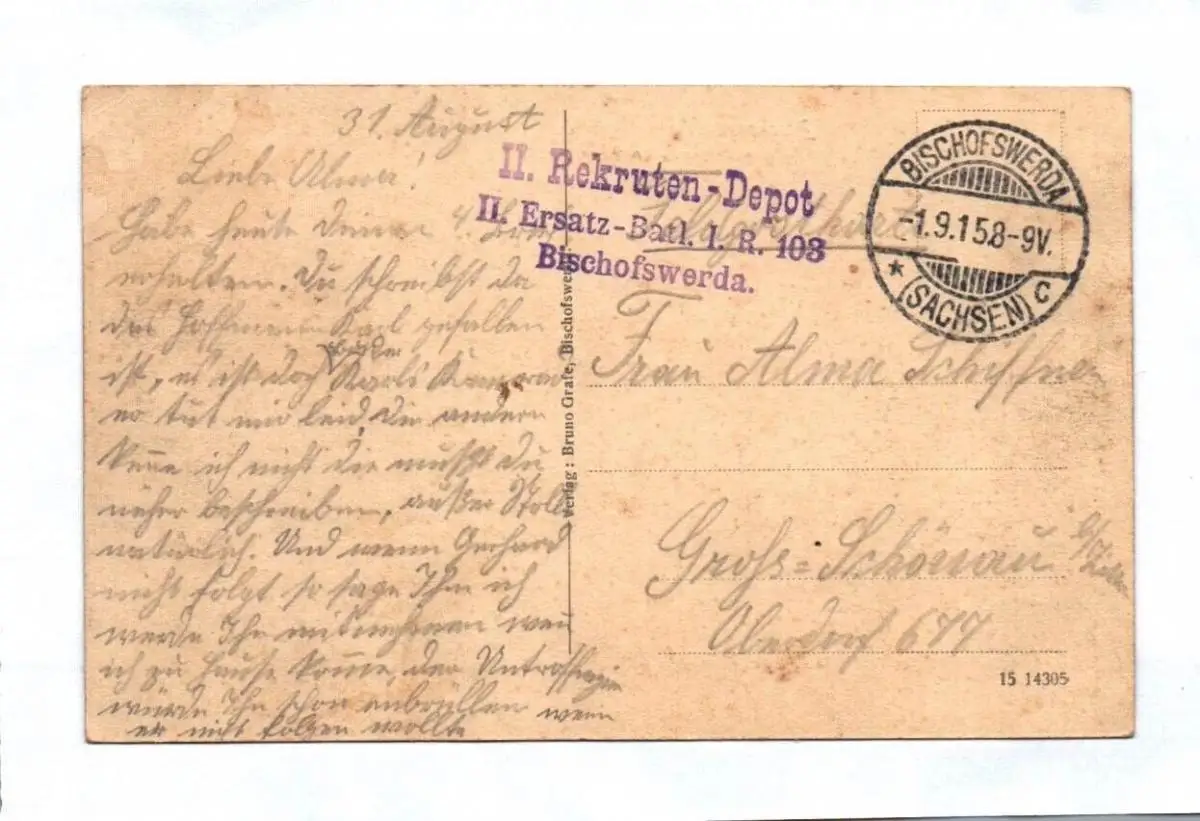 31. August
Liebe Alma!
Habe heute deinen 4. Brief
erhalten. Du schreibst da
das Hoffmann Karl gefallen
ist, es ist doch Karls Kamerad
er tut mir leid, die andern
kenne ich nicht die mußt du
näher beschreiben, außer Stoll
natürlich. Und wenn Gerhard
nicht folgt so sage Ihm ich
werde Ihn mitnehmen wen
ich zu Hause komme, der Unteroffizier
würde Ihn schon anbrüllen wenn
er nicht folgen wollte
Verlag: Bruno Grafe, Bischofswerda
II. Rekruten-Depot
II. Ersatz-Batl. I. R. 103
Bischofswerda.
Feldpostkarte
BISCHOFSWERDA
-1.9.15.8-9V.
* (SACHSEN) C
Frau Alma Schiffner
Groß-Schönau
Oberdorf 677
15 14305